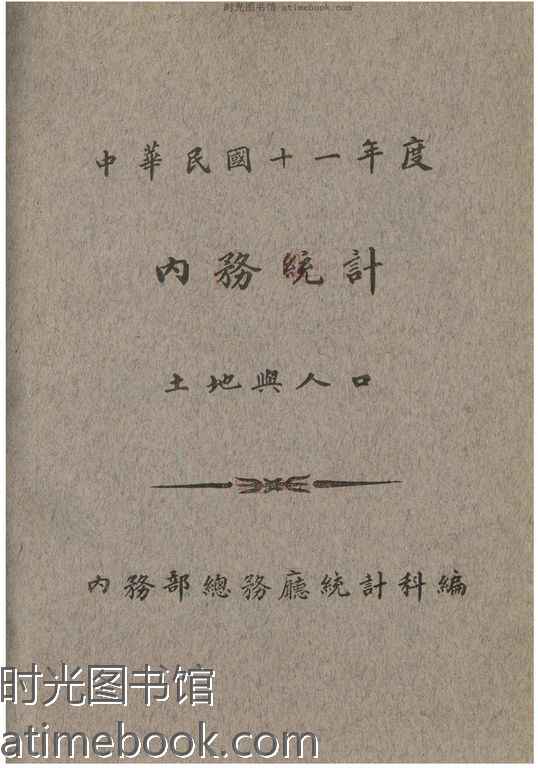 时光图书馆 atimebook.com
中華民國十一年度
內務統計
土地與人口
內務部總務廳統計科編
时光图书馆
atimebook.com